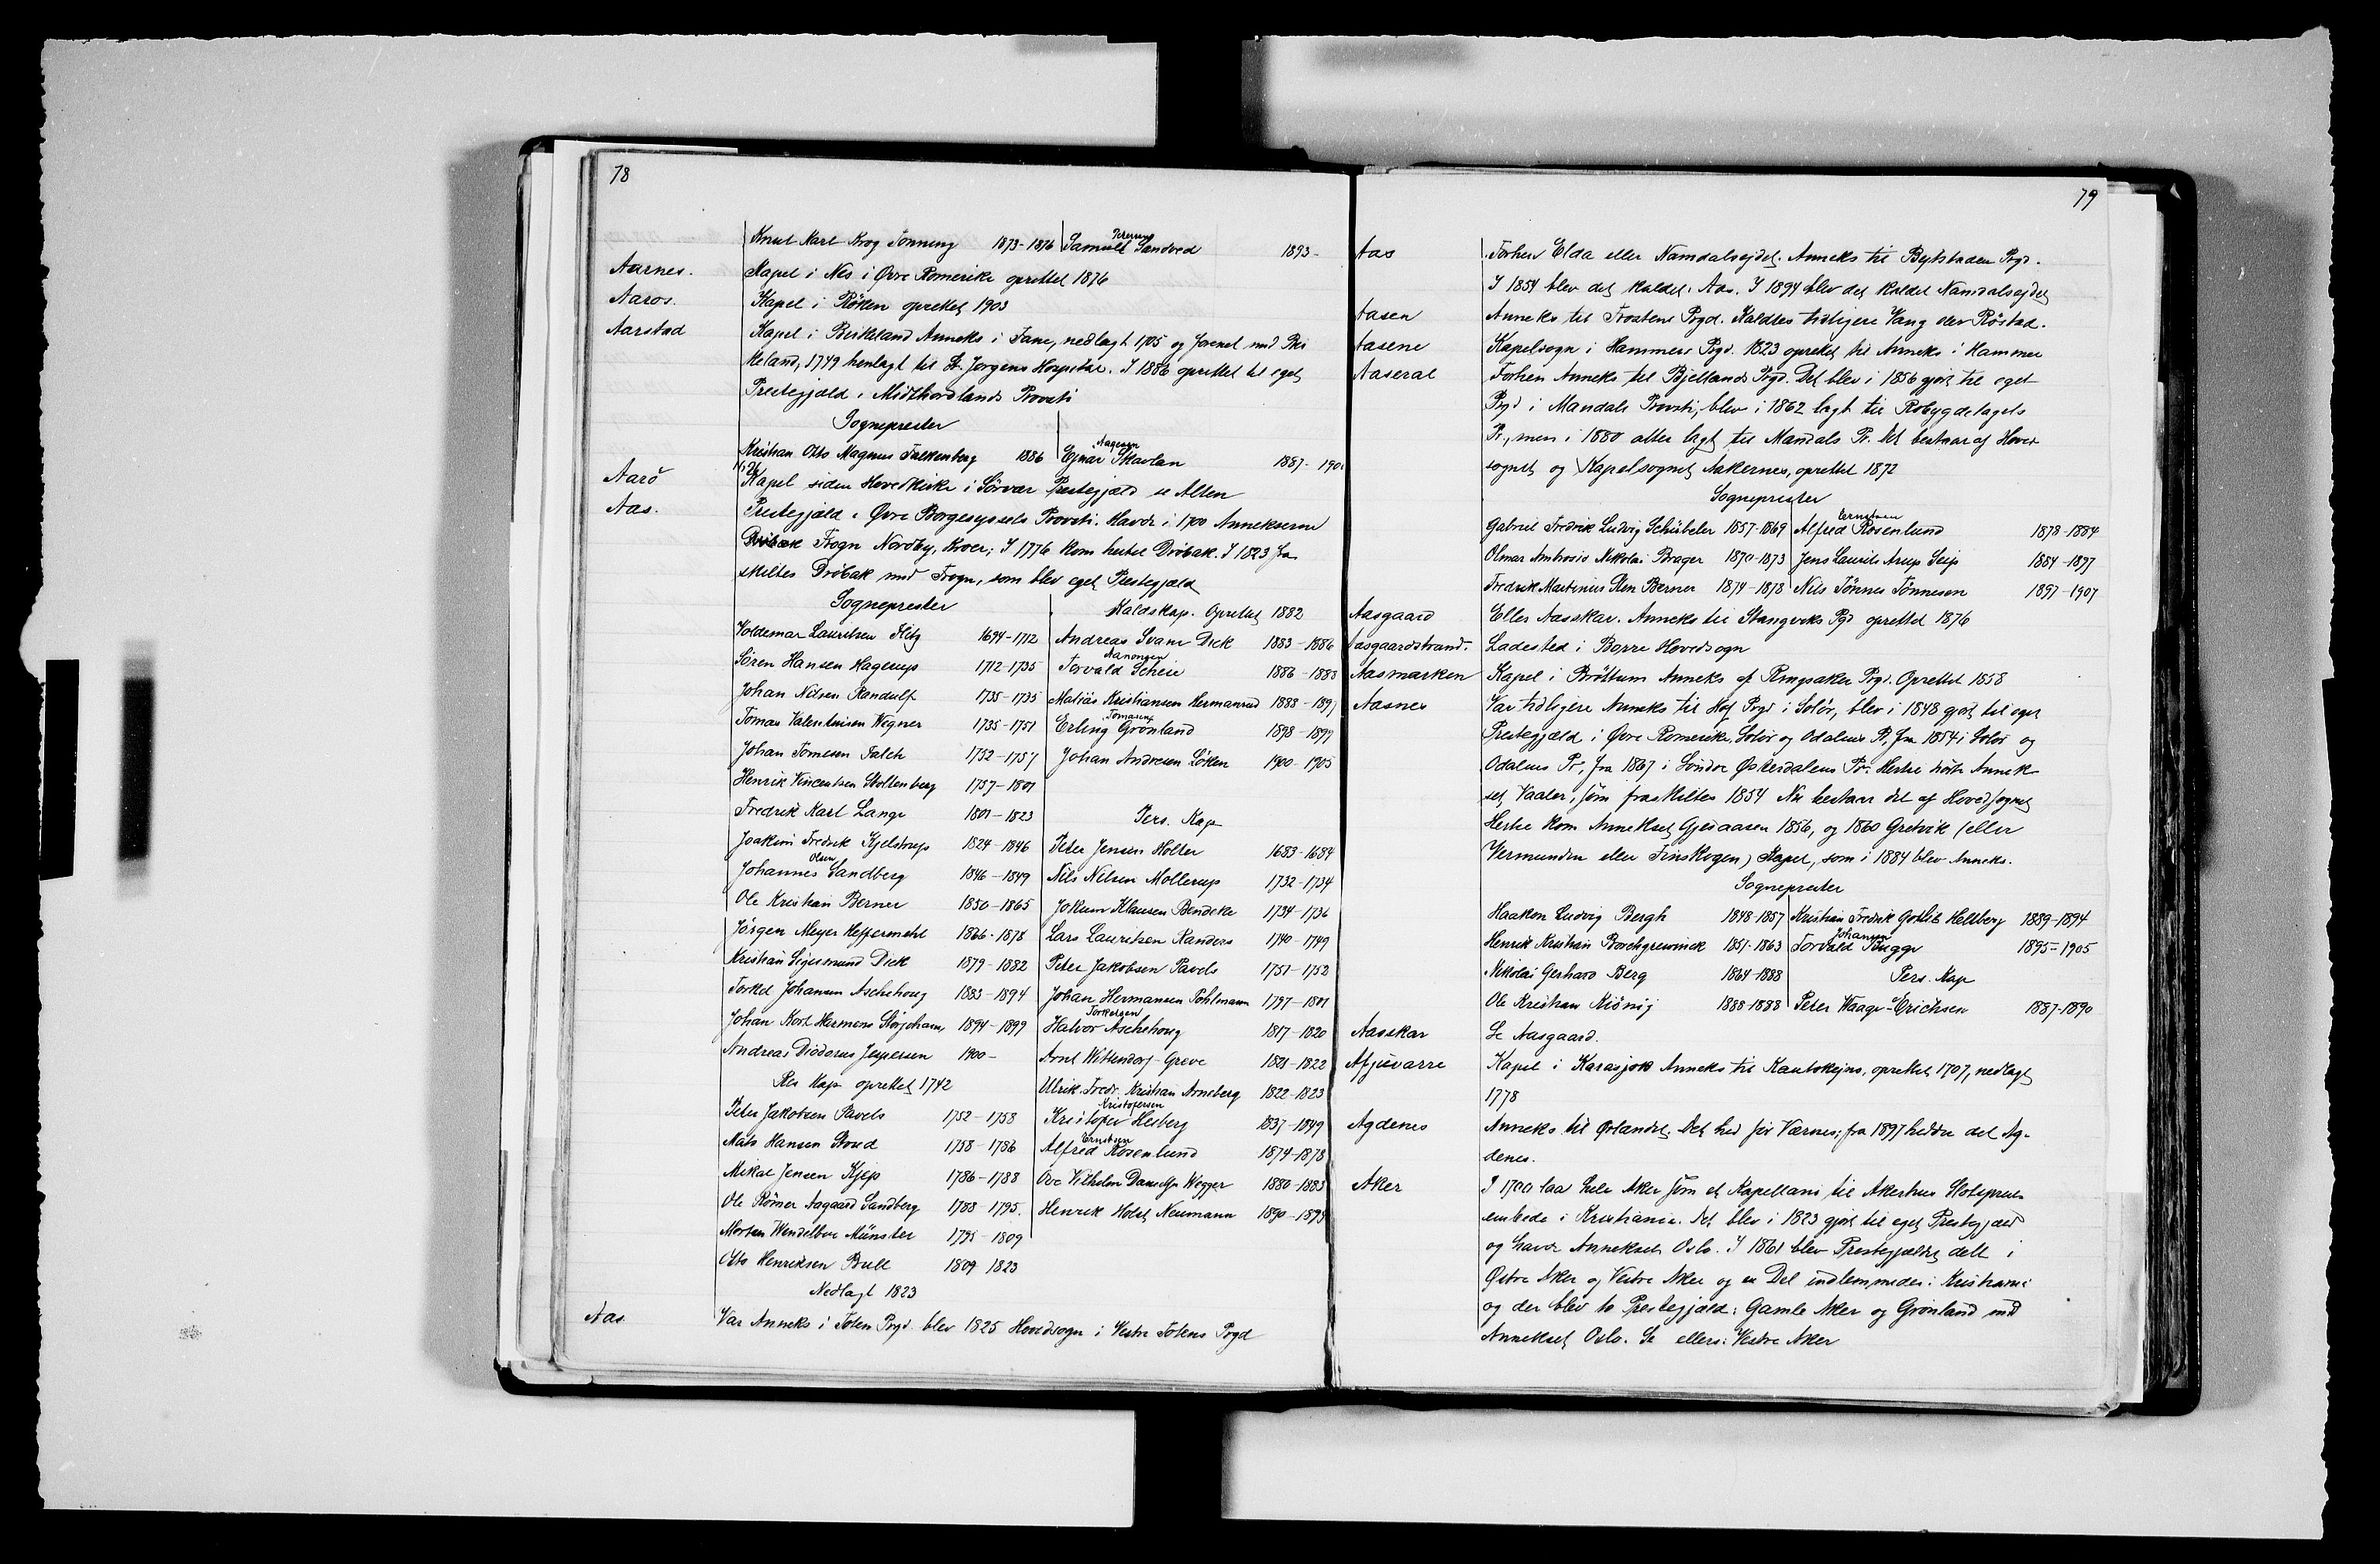 78
Knut Karl Krog Tonning 1873-1876 Samuel Sandved 1893-
Aarnes. Kapel i Nes i Øvre Romerike oprettet 1876
Aaros. Kapel i Röken oprettet 1903
Aarstad Kapel i Birkeland Anneks i Fane, nedlagt 1705 og forenet med Bir
keland, 1749 henlagt til St. Jörgens Hospital. I 1886 oprettet til eget
Prestegjæld i Midthordlands Provsti
Sogneprester
Aagesen
Kristian Otto Magnus Falkenberg 1886 Ejnar Skavlan 1887-190
Aarö Kapel siden Hovedkirke i Sörvær Prestegjæld se Alten
Aas. Prestegjæld i Øvre Borgesyssels Provsti. Havde i 1700 Annekserne
Drøbak Frogn Nordby, Kroer; I 1776 kom hertil Dröbak. I 1823 fra
skiltes Dröbak med Frogn, som blev eget Prestegjæld
Sogneprester Kaldskap. Oprettet 1882
Voldemar Lauritsen Flitz 1694-1712 Andreas Svane Dick 1883-1886
Aanonsen
Sören Hansen Hagerup 1712-1735 Torvald Scheie 1886-1888
Johan Nilsen Randulf 1735-1735 Matias Kristiansen Hermanrud 1888-1897
Tomasen
Tomas Valentinsen Wegner 1735-1751 Erling Grönland 1898-1899
Johan Tomesen Falch 1752-1757 Johan Andresen Löken 1900-1905
Henrik Vincentsen Stoltenberg 1757-1801
Fredrik Karl Lange 1801-1823 Pers. Kap
Joakim Fredrik Kjelstrup 1824-1846 Peter Jensen Holter 1683-1684
Olsen
Johannes Sandberg 1846-1849 Nils Nilsen Mollerup 1732-1734
Ole Kristian Berner 1850-1865 Jokum Klausen Bendeke 1734-1736
Jörgen Meyer Heffermehl 1866-1878 Lars Lauritsen Randers 1740-1749
Kristian Sigismund Dick 1879-1882 Peter Jakobsen Pavels 1751-1752
Torkel Johansen Aschehoug 1883-1894 Johan Hermansen Pohlmann 1797-1801
Torkelsen
Johan Kort Harmens Storjohann 1894-1899 Halvor Aschehoug 1817-1820
Andreas Diodorus Jespersen 1900- Arnt Wittendorf Greve 1821-1822
Res Kap oprettet 1742 Ulrik Fredr. Kristian Arneberg 1822-1823
Kristofersen
Peter Jakobsen Pavels 1752-1758 Kristofer Heiberg 1837-1849
Ernstsen
Mats Hansen Stoud 1758-1786 Alfred Rosenlund 1874-1878
Mikal Jensen Kjep 1786-1788 Ove Vilhelm Wegger 1880-1883
Ole Römer Aagaard Sandberg 1788-1795. Henrik Holst Neumann 1890-1893
Morten Wendelboe Münster 1795-1809
Otto Henriksen Bull 1809 1823
Nedlagt 1823
Aas Var Anneks i Toten Prgd. blev 1825 Hovedsogn i Vestre Totens Prgd
79
Aas Forhen Elda eller Namdalsejdet. Anneks til Bejtstaden Prgd.
I 1854 blev det kaldet: Aas. I 1894 blev det kaldet Namdalsejdet
Aasen Anneks til Frostens Prgd. Kaldtes tidligere Vang eller Röstad.
Aasene Kapelsogn i Hammers Prgd. 1823 oprettet til Anneks i Hammer
Aaseral Forhen Anneks til Bjellands Prgd. Det blev i 1856 gjort til eget
Prgd i Mandals Provsti, blev i 1862 lagt til Robygdelagets
Pr., men i 1880 atter lagt til Mandals Pr. Det bestaar af Hoved
sognet og Kapelsognet Aakernes, oprettet 1872
Sogneprester
Ernstsen
Gabriel Fredrik Ludvig Schübeler 1857-1869 Alfred Rosenlund 1878-1884
Olmar Ambrosio Nikolai Brager 1870-1873 Jens Laurits Arup Seip 1884-1897
Fredrik Martinius Sten Berner 1874-1878 Nils Tönnes Tönnesen 1897-1907
Aasgaard Eller Aasskar. Anneks til Stangviks Pgd oprettet 1876
Aasgaardstrand. Ladested i Borre Hovedsogn
Aasmarken Kapel i Bröttum Anneks af Ringsaker Prgd. Oprettet 1858
Aasnes Var tidligere Anneks til Hof Prgd i Solör, blev i 1848 gjort til eget
Prestegjæld i Øvre Romerike, Solör og Odalens Pr., fra 1854 i Solör og
Odalens Pr., fra 1867 i Söndre Østerdalens Pr. Hertil hörte Annek
set Vaaler, som fraskiltes 1854 Nu bestaar det af Hovedsognet
Hertil kom Annekset Gjesaasen 1856, og 1860 Gretvik (eller
Vermunden eller Finskogen) Kapel, som i 1884 blev Anneks.
Sogneprester
Haakon Ludvig Bergh 1848-1857 Kristian Fredrik Gotlib Hellberg 1889-1894
Johansen
Henrik Kristian Borchgrevinck 1857-1863 Torvald Bugge 1895-1905
Nikolai Gerhard Berg 1864-1888 Pers. Kap
Ole Kristian Kiönig 1888-1888 Peter Waage-Erichsen 1887-1890
Aasskar Se Aasgaard.
Afjuvarre Kapel i Karasjok Anneks til Kautokejno, oprettet 1707, nedlagt
1778
Agdenes Anneks til Ørlandet. Det hed för Værnes; fra 1897 hedder det Ag-
denes.
Aker I 1700 laa hele Aker som et Kapellani til Akershus Slotspreste
embede i Kristiania. Det blev i 1823 gjort til eget Prestegjæld
og havde Annekset Oslo. I 1861 blev Prestegjældet delt i
Østre Aker og Vestre Aker og en Del indlemmedes i Kristiania
og der blev to Prestegjæld: Gamle Aker og Grönland med
Annekset Oslo. Se ellers: Vestre Aker